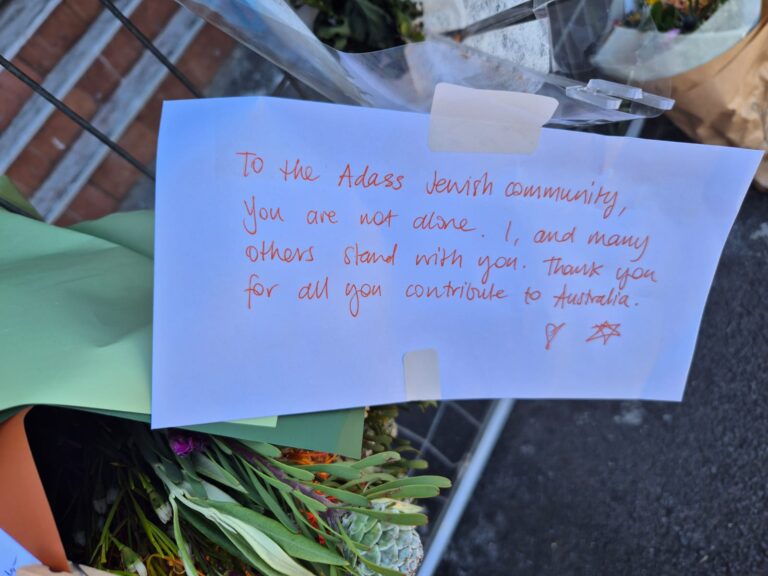 To the Adass Jewish community,
you are not alone. I, and many
others stand with you. Thank you
for all you contribute to Australia.